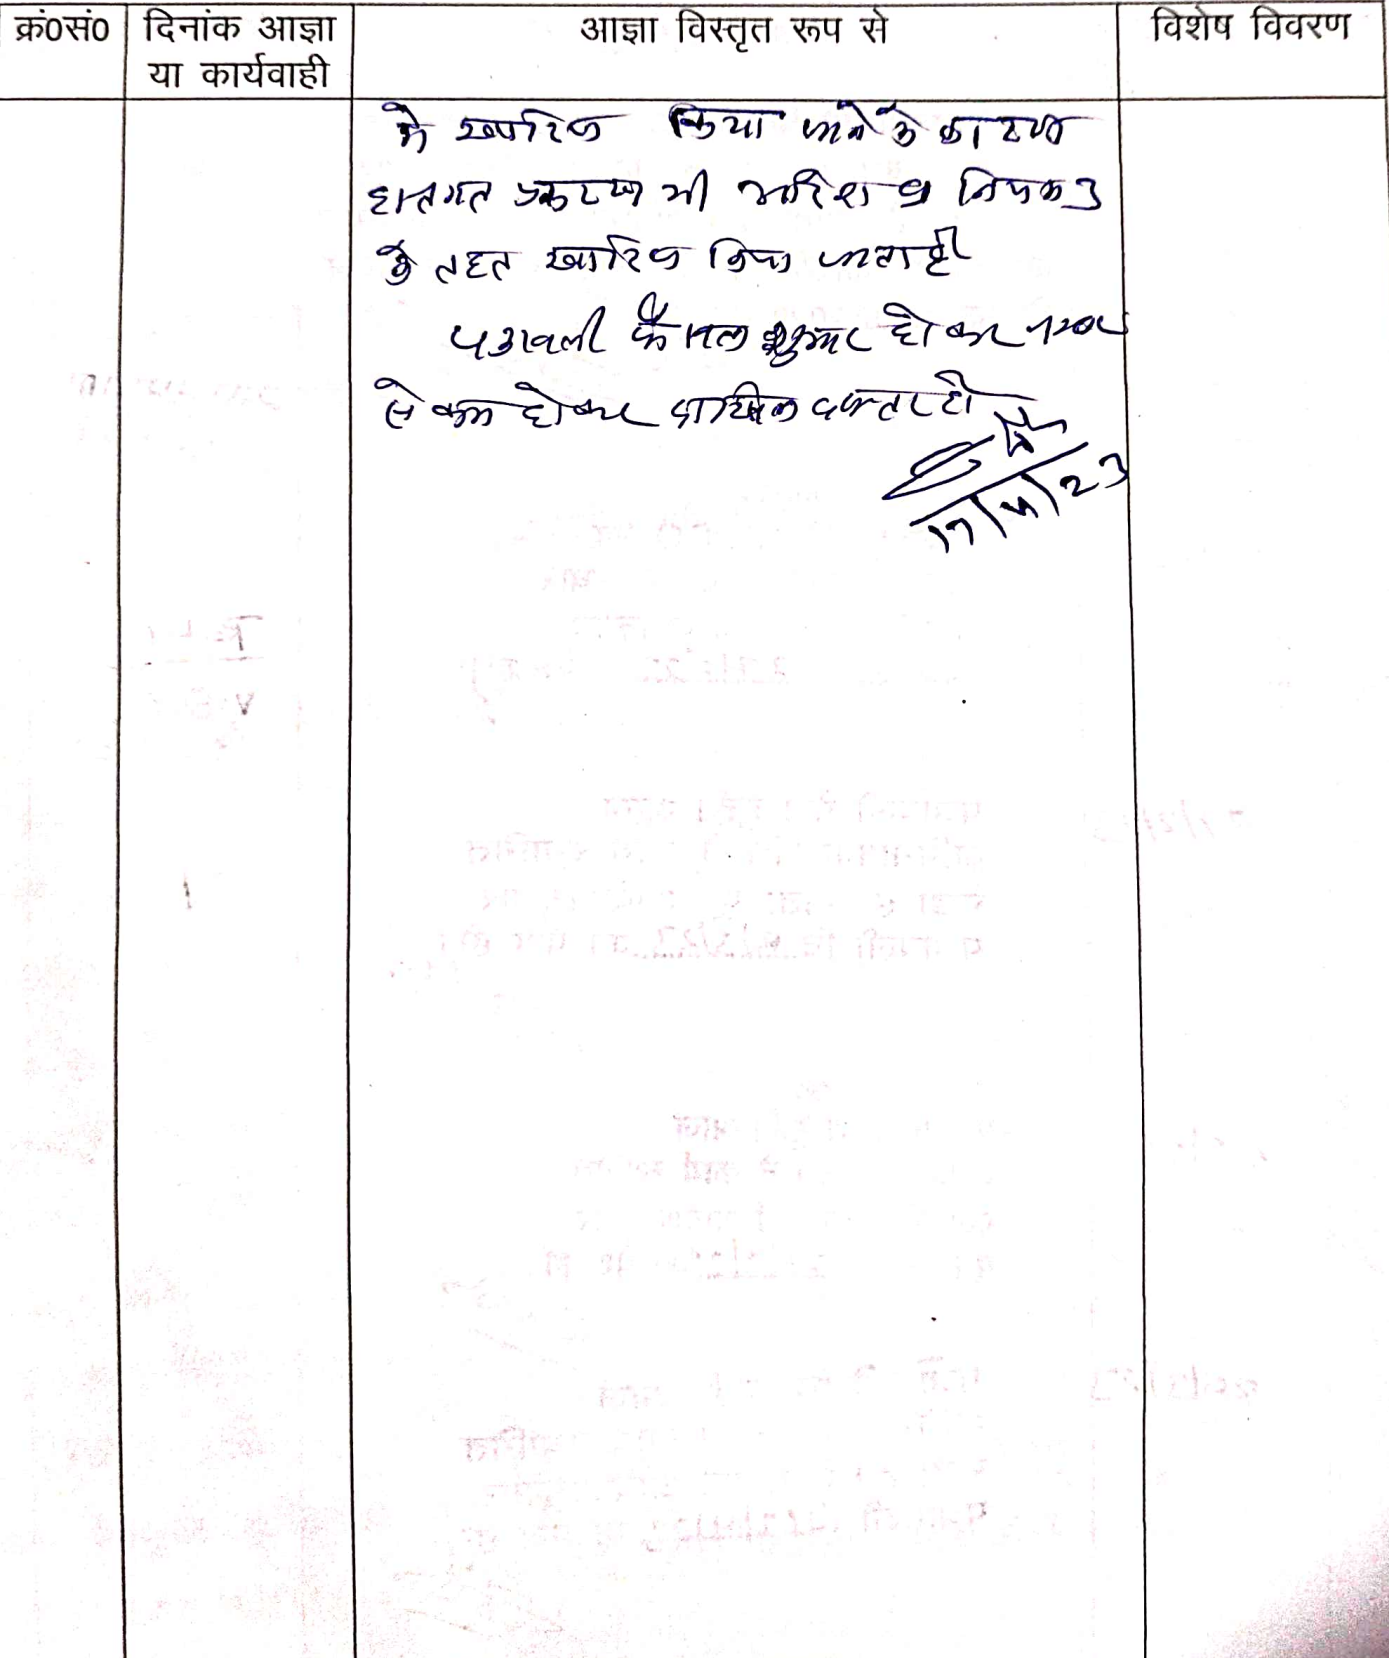 क्रं०सं० दिनांक आज्ञा या कार्यवाही आज्ञा विस्तृत रूप से विशेष विवरण
मे खारिज किया जाने के कारण
हस्तगत प्रकरण भी आदेश 9 नियम 3
के तहत खारिज किया जाता है
पत्रावली फैसल शुमार होकर नम्बर
से कम होकर दाखिल दफ्तर हो
17/4/23